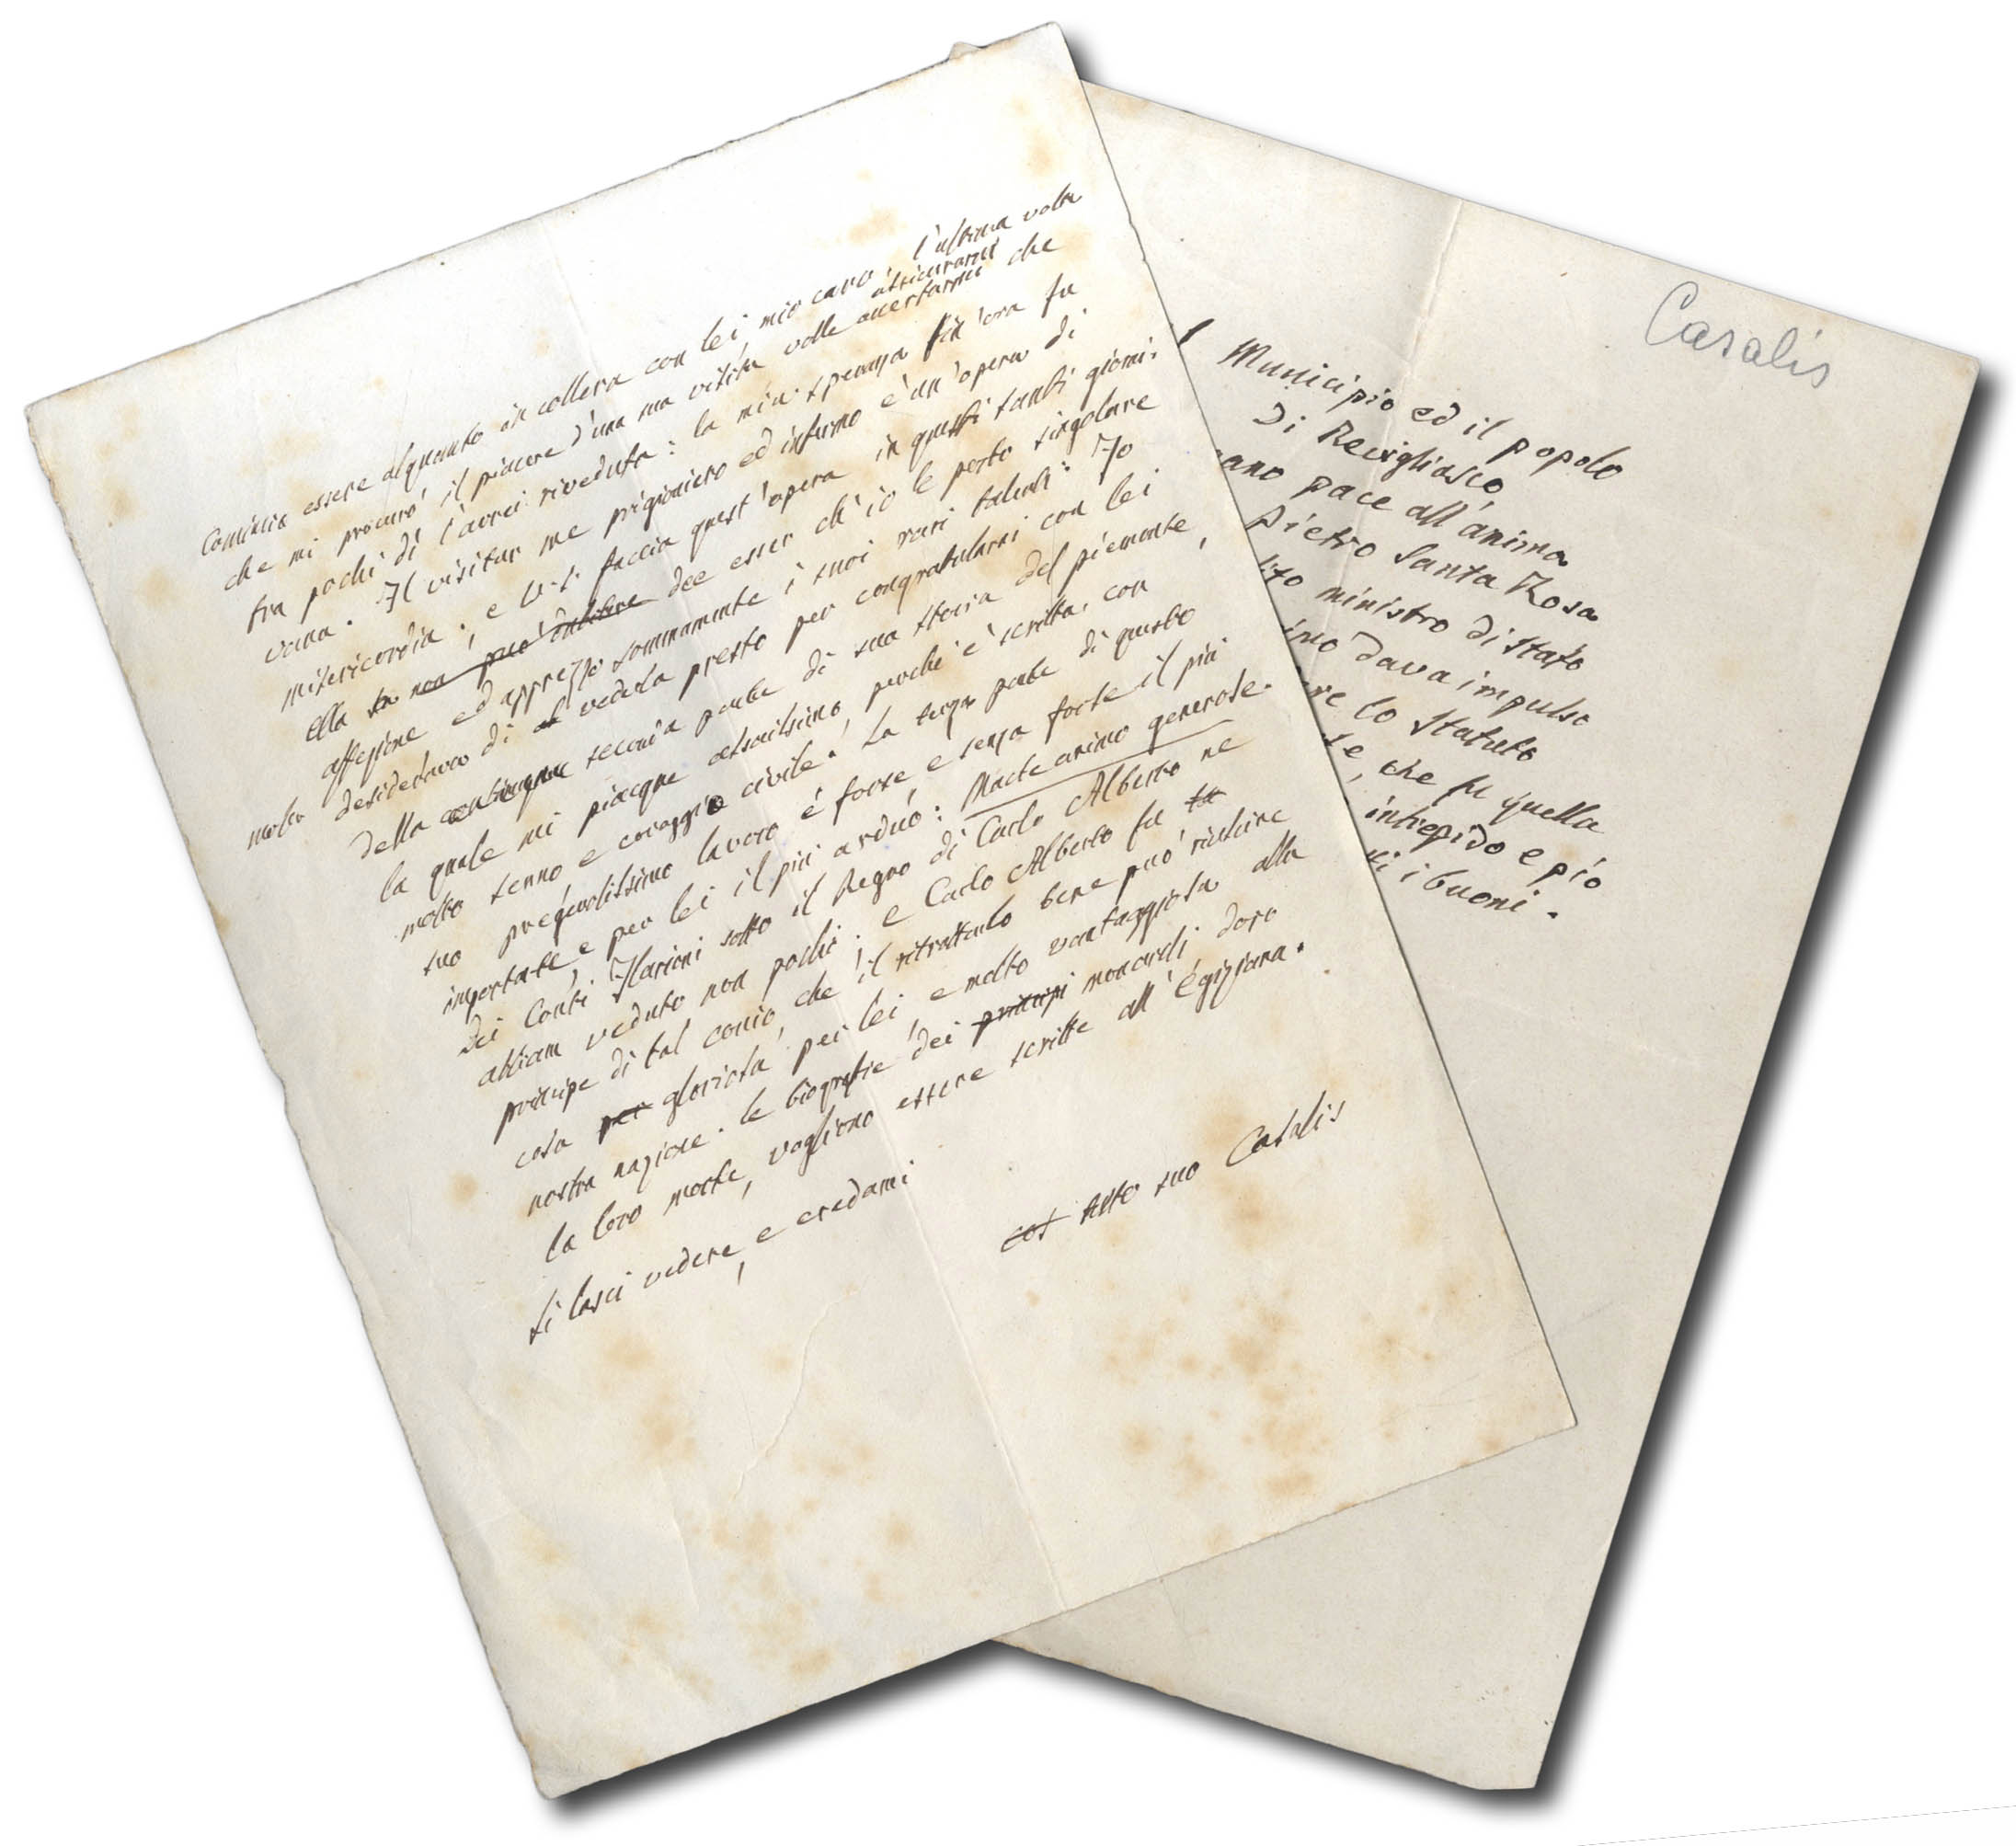 Comincio essere alquanto in collera con lei, mio caro. l'ultima volta
che mi procurò il piacere d'una sua visita volle assicurarmi accertarmi che
fra pochi dì l'avrei riveduta: la mia speranza fin'ora fu
vana. Il visitar me prigioniero ed infermo è un'opera di
misericordia; e V.S. faccia quest'opera in questi santi giorni.
Ella non può dubitare dee esser ch'io le porto singolare
affezione ed apprezzo sommamente i suoi rari talenti: Io
molto desiderava di vederla presto per congratularmi con lei
della seconda parte di sua storia del piemonte,
la quale mi piacque assaissimo, perché è scritta con
molto senno e coraggio civile. La terza parte di questo
suo pregevolissimo lavoro è forse, e senza forse il più
importante, e per lei il più arduo: Macte animo generose.
Dei Conti Ilarioni sotto il Regno di Carlo Alberto ne
abbiam veduto non pochi; e Carlo Alberto fu
principe di tal conio, che il ritrattarlo bene può riuscire
cosa per gloriosa per lei, e molto vantaggiosa alla
nostra nazione. le biografie dei principi monarchi dopo
la loro morte, vogliono essere scritte all'Egiziana.
Si lasci vedere, e credami
tutto suo Casalis
Casalis
Municipio ed il popolo
Di Revigliasco
ano pace all'anima
Pietro Santa Rosa
ministro di stato
imo dava impulso
re lo Statuto
te, che fu quella
intrepido e pio
i buoni.